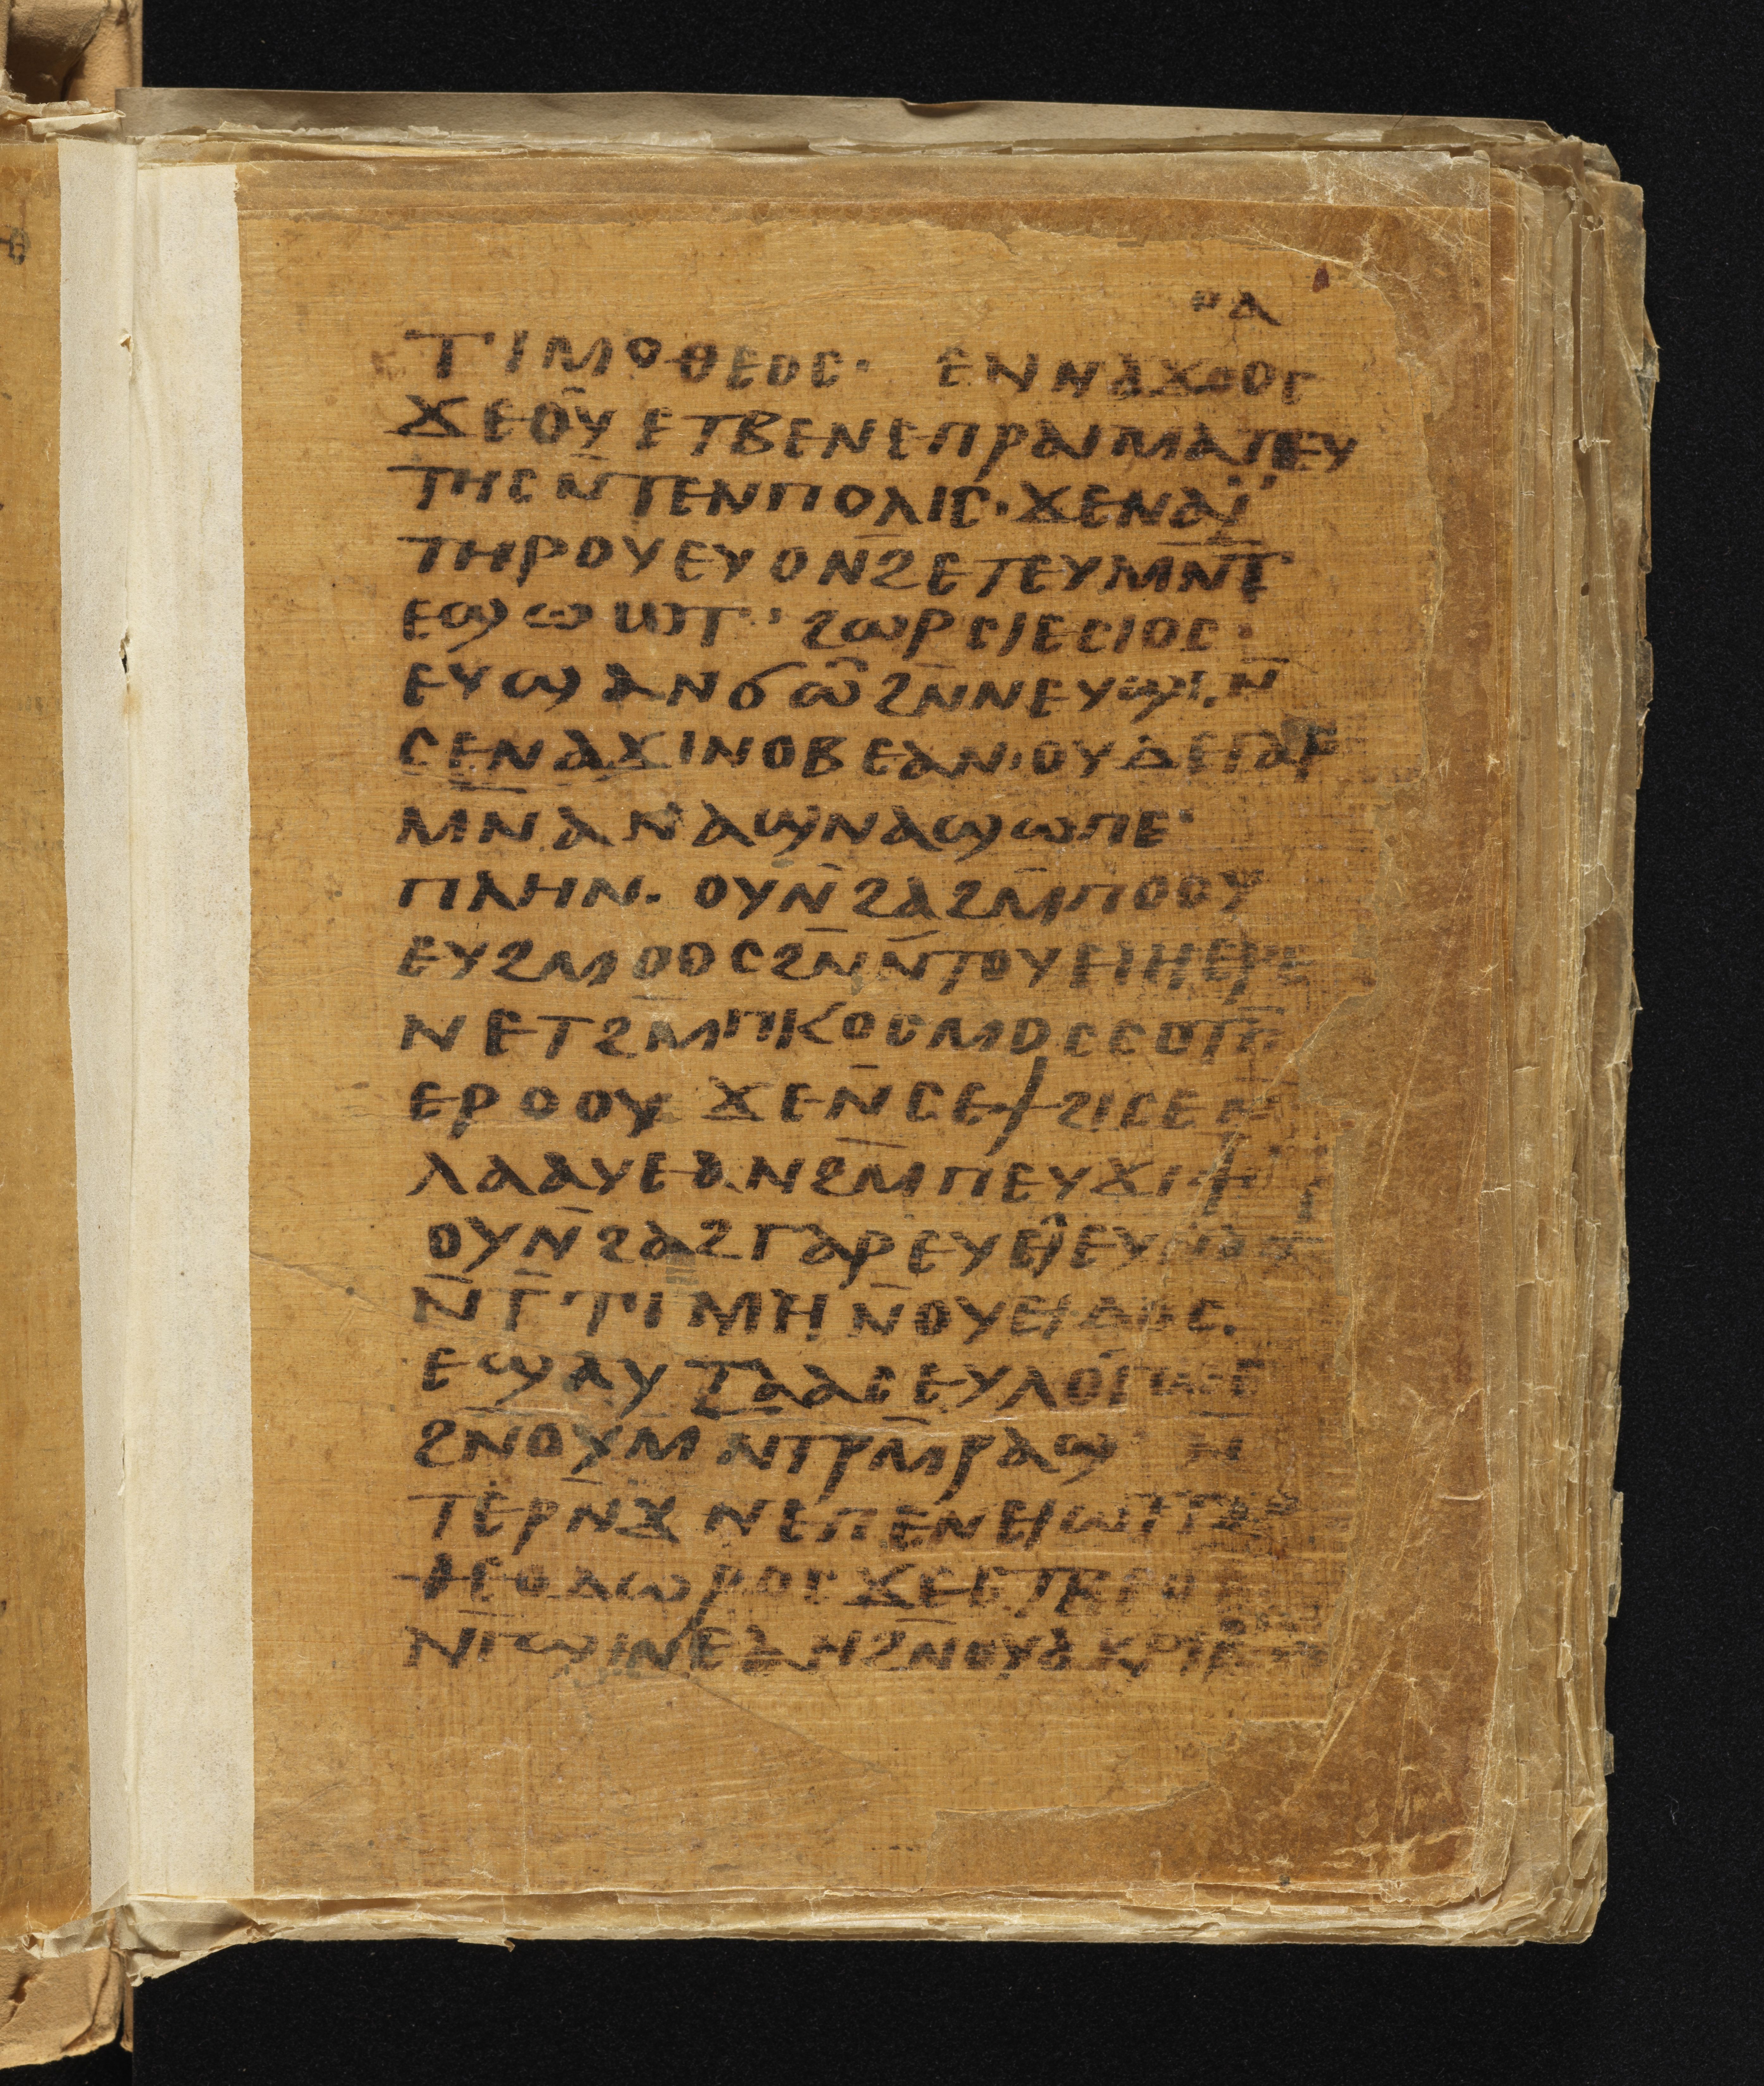 ⲟⲁ
ⲧⲓⲙⲟⲑⲉⲟⲥ· ⲉⲛⲛⲁϫⲟⲟⲥ
ϫⲉⲟⲩ ⲉⲧⲃⲉⲛⲉⲡⲣⲁⲅⲙⲁⲧⲉⲩ
ⲧⲏⲥ ⲛ̄ⲧⲉⲛⲡⲟⲗⲓⲥ· ϫⲉⲛⲁⲓ̈
ⲧⲏⲣⲟⲩ ⲉⲩⲟⲛϩ̄ ⲉⲧⲉⲩⲙⲛ̄ⲧ
ⲉϣⲱⲱⲧ' ϩⲱⲣⲥⲓⲉⲥⲓⲟⲥ·
ⲉⲩϣⲁⲛϭⲱ ϩⲛ̄ⲛⲉⲩϣⲓ· ⲛ̄
ⲥⲉⲛⲁϫⲓⲛⲟⲃⲉ ⲁⲛ· ⲟⲩⲇⲉ ⲅⲁⲣ
ⲙⲛ̄ⲁⲛⲁϣ ⲛⲁϣⲱⲡⲉ·
ⲡⲗⲏⲛ· ⲟⲩⲛ̄ϩⲁϩ ⲙ̄ⲡⲟⲟⲩ
ⲉⲩϩⲙⲟⲟⲥ ϩⲛ̄ⲛ̄ⲧⲟⲩⲉⲓⲏ ⲉⲣⲉ
ⲛⲉⲧϩⲙ̄ⲡⲕⲟⲥⲙⲟⲥ ⲥⲟⲧⲡ̄
ⲉⲣⲟⲟⲩ ϫⲉⲛ̄ⲥⲉϯϩⲓⲥⲉ ⲛ
ⲗⲁⲁⲩⲉ ⲁⲛ ϩⲙ̄ⲡⲉⲩϫⲓϯ
ⲟⲩⲛ̄ϩⲁϩ ⲅⲁⲣ ⲉⲩⲉⲓ ⲉⲩⲛⲁϣ
ⲛ̄ⲧ̄ⲧⲓⲙⲏ ⲛ̄ⲟⲩⲉⲓⲇⲟⲥ·
ⲉϣⲁⲩⲧⲁⲁⲥ ⲉⲩⲗⲟⲓϭⲉ
ϩⲛ̄ⲟⲩⲙⲛ̄ⲧⲣⲙ̄ⲣⲁϣ· ⲛ̄
ⲧⲉⲣⲛ̄ϫⲛⲉⲡⲉⲛⲉⲓⲱⲧ ⲅⲁⲣ
ⲑⲉⲟⲇⲱⲣⲟⲥ ϫⲉⲉⲧⲃⲉⲟⲩ
ⲛ̄ⲅ̄ϣⲓⲛⲉ ⲁⲛ ϩⲛ̄ⲟⲩⲁⲕⲣⲓⲃ